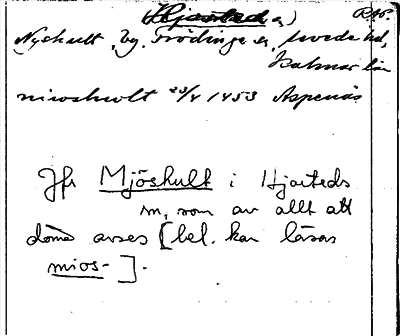 (Hjorted s) RAP.
Nyshult, by, Frödinge s, Sevede hd,
Kalmar län
mioshwlt 23/4 1453 Aspenäs
Jfr Mjöshult i Hjorteds
sn, som av allt att
döma avses [bel. kan läsas
mios-].